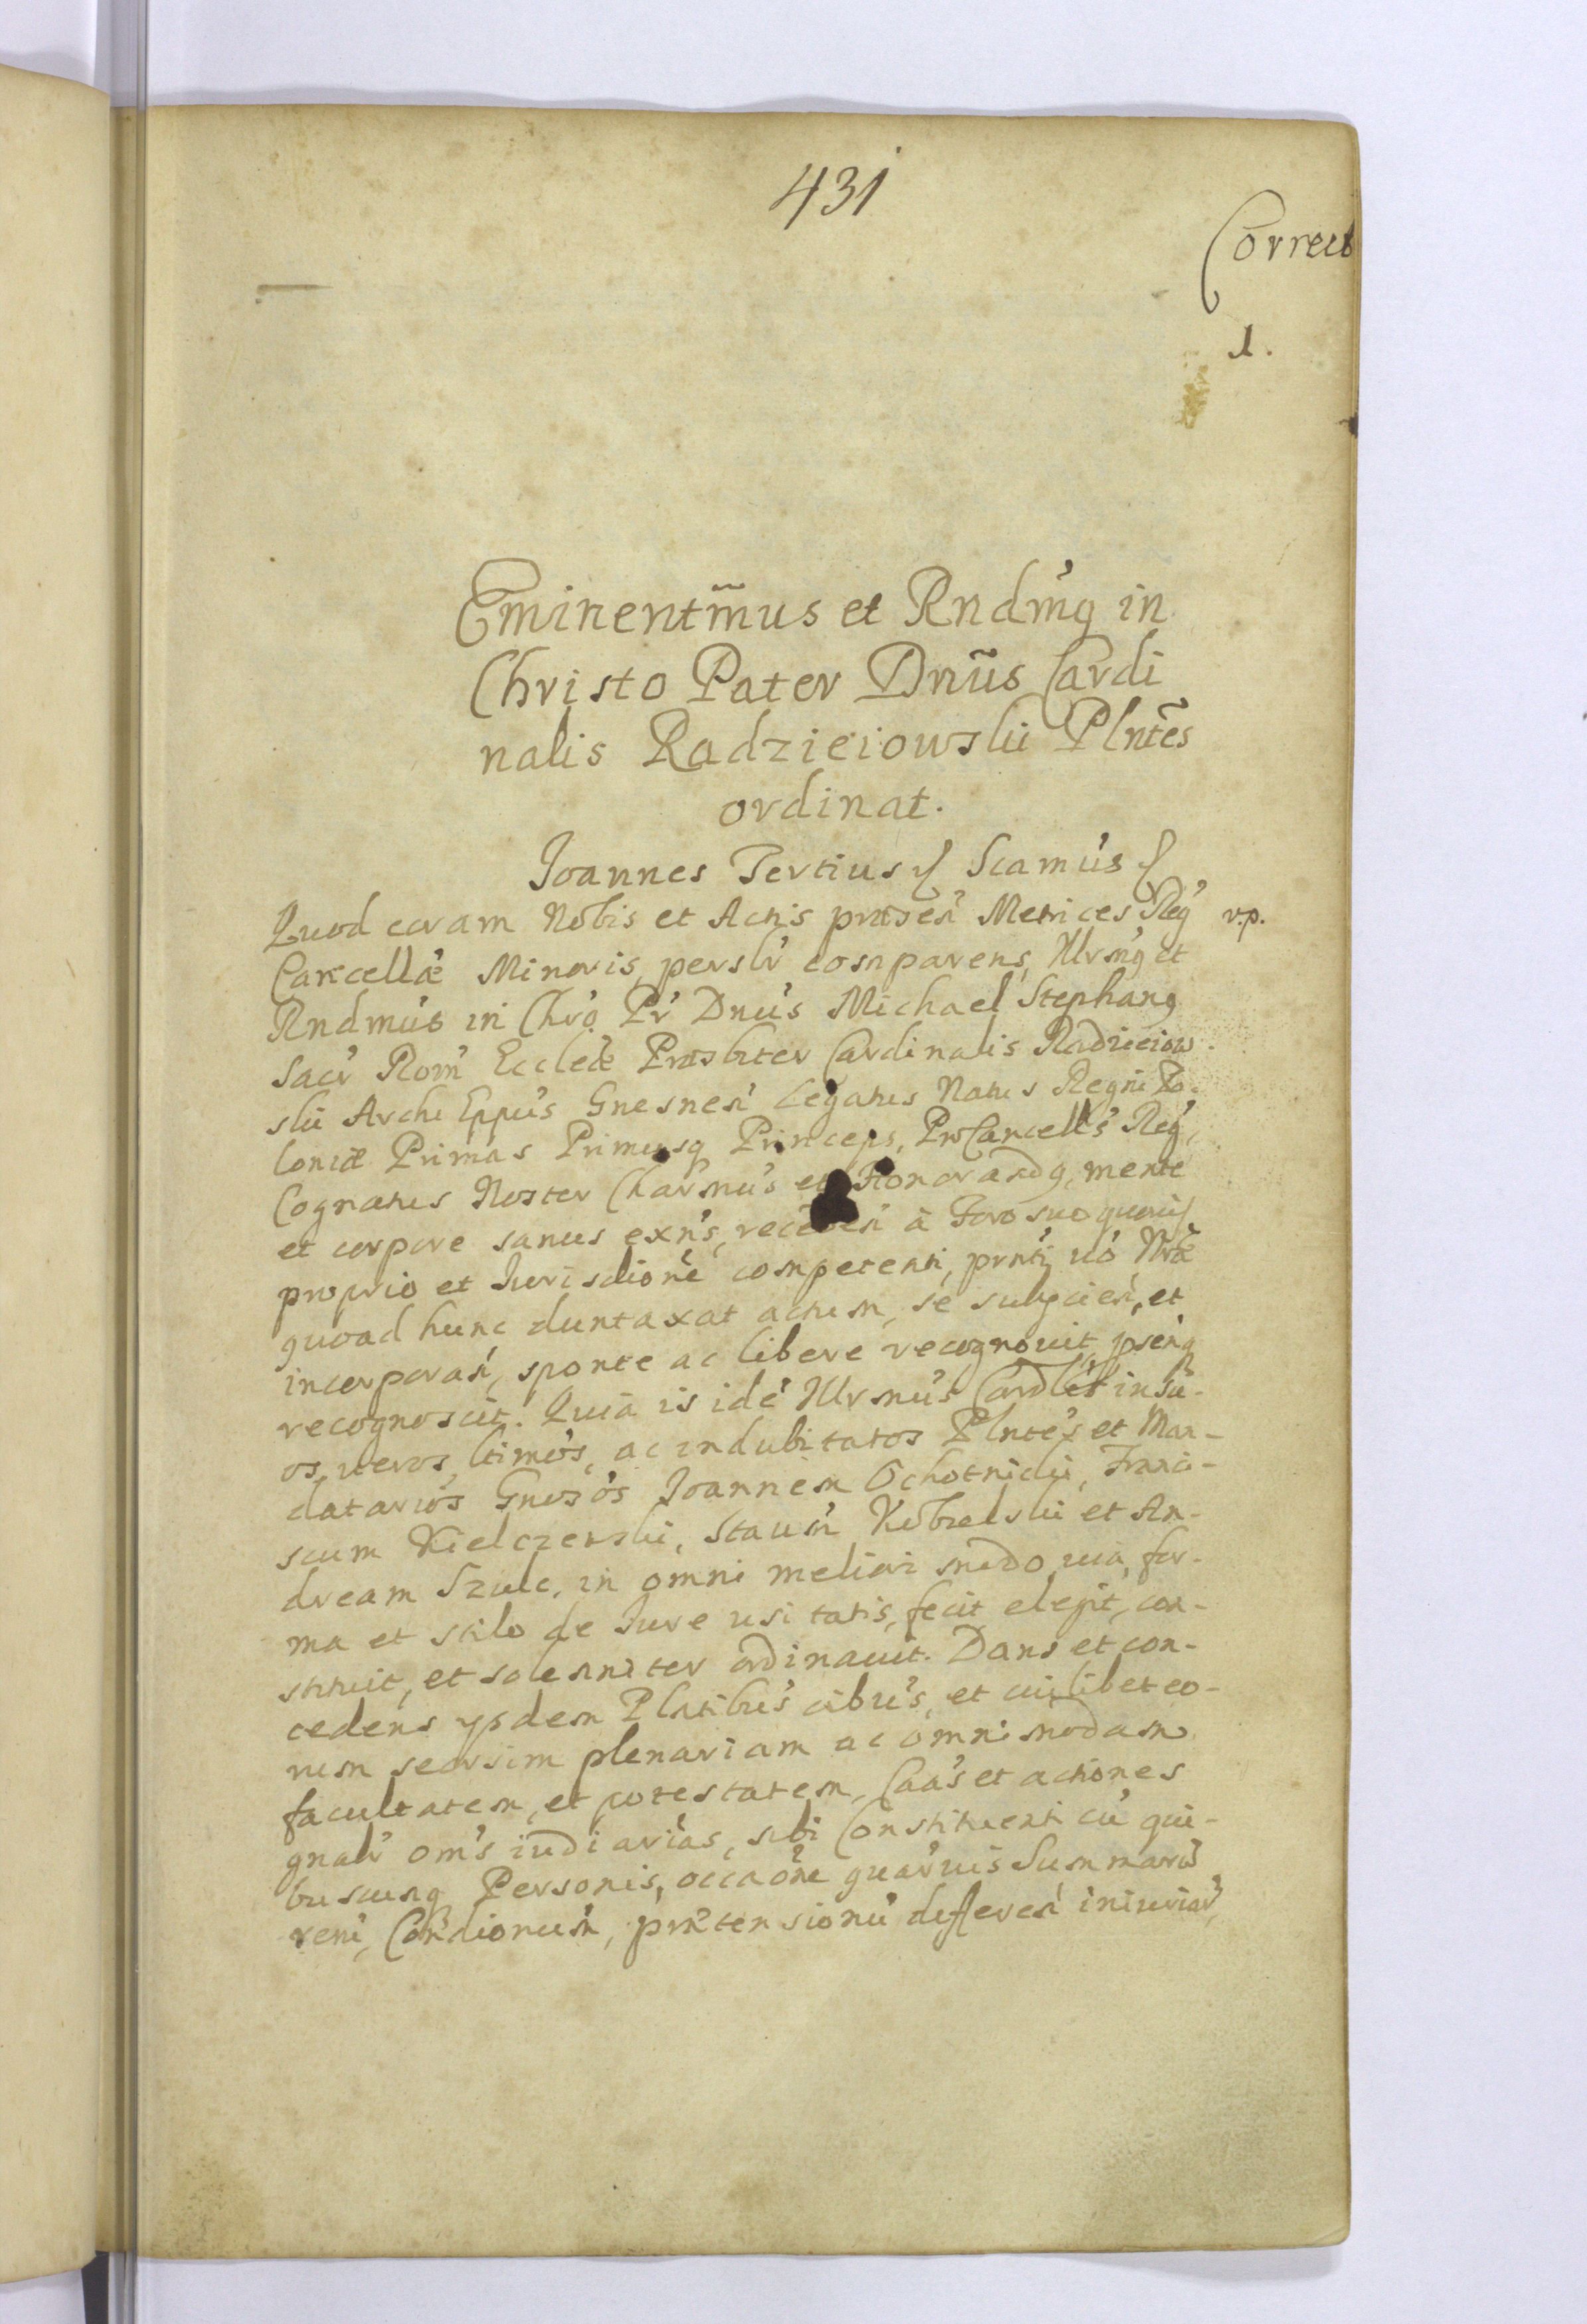 431
Correct
1.
Eminentm̃us et Rndm̃q in
Christo Pater Dnũs Cardi
nalis Radzieiowskii Plntẽs
ordinat.
Joannes Tertius Scamús
Quod coram Nobis et Actis præsen̓ Metrices Reg̓ v.p.
Cancellæ Minoris, persl̓r comparens, Illrsm̓q et
Rndmús in Chr̓o Pr̓ Dnús Michael Stephanq
Sacr̓ Rom̓ Eccleæ Præsbiter Cardinalis Radzieiow-
skii Archi Eppús Gnesnen̓ Legatus Natus Regni Po-
loniæ Primas Primusq Princeps, ProCancell̓s Reg̓,
Cognatus Noster Char̓mús et Honorandq, mente
et corpore sanus exn̓s, receden̓ à Foro suo quouis
proprio et Jurisdione̓ competenti, prnti̓ uó Nræ̃
quoad hunc duntaxat actum, se subycien̓, et
incorporan̓, sponte ac libere recognouit, pseńq
recognoscit. Quia is ide̓ Illrsmús Cardl̓is in Su-
os, ueros, ltimós, ac indubitatos Plntés et Man-
datariós Gnosós Joannem Ochotnicki, Franci-
scum Kielczewski, Staun̓ Kobielski et An-
dream Szulc, in omni meliori modo, uia, for-
ma et stilo de Jure usitatis, fecit elegit, con-
stituit, et solemniter ordinauit. Dans et con-
cedens ysdem Plntibús oibús, et cuilibet eo-
rum seorsim plenariam ac omnimodam
facultatem, et potestatem, Caás et actiones
gnalr̓ om̓s iudiariás, sibi Constituenti cú qui-
buscunq Personis, occaoñe quar̓uis Summarú
reni̓, Condionum̓, prætensionú differen̓ iniuriar̓,